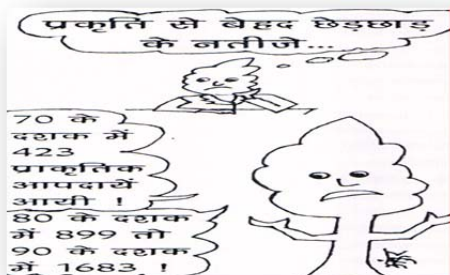 प्रकृति से बेहद छेड़छाड़
के नतीजे...
70 के
दशक में
423
प्राकृतिक
आपदायें
आयी !
80 के दशक
में 899 तो
90 के दशक
में 1683 !